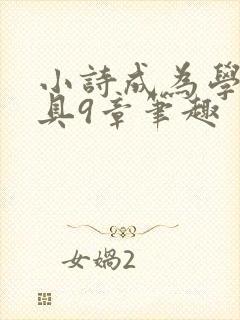 小詩成為學
具9章筆趣
女媧2